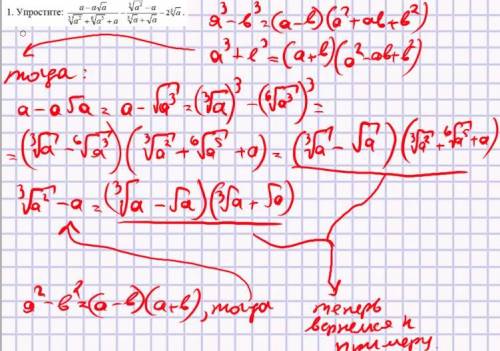 1. Упростите: (a − a√a)/(∛a² + ⁶√a⁵ + a) − (∛a² − a)/(∛a + √a) − 2∛a.
a³−b³=(a−b)(a²+ab+b²)
a³+b³=(a+b)(a²−ab+b²)
тогда:
a−a√a = a−√a³ = (∛a)³−(⁶√a³)³ =
=(∛a−⁶√a³)(∛a²+⁶√a⁵+a) = (∛a−√a)(∛a²+⁶√a⁵+a)
∛a²−a=(∛a−√a)(∛a+√a)
a²−b²=(a−b)(a+b), тогда
теперь
вернемся к
примеру.